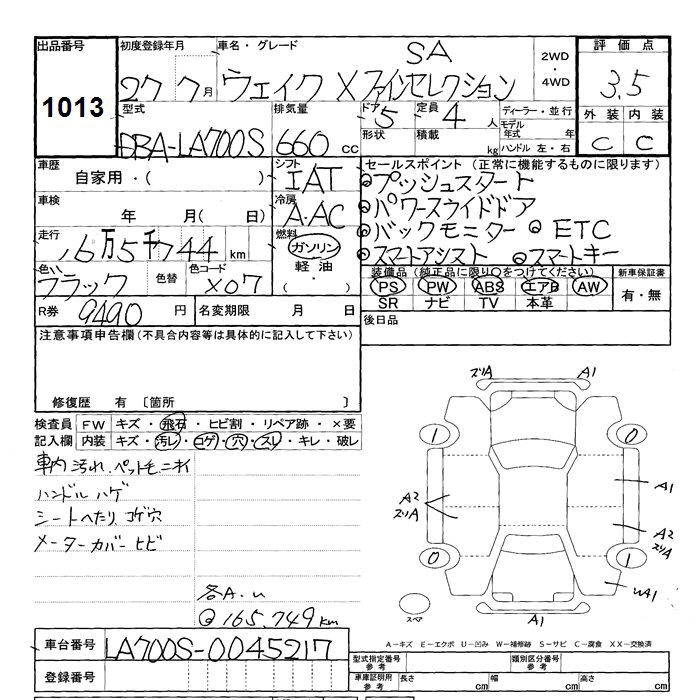 出品番号
1013
初度登録年月
27 7月
車名・グレード
SA
ウェイク X ファインセレクション
2WD
・
4WD
評価点
3.5
外装 内装
C C
型式
DBA-LA700S
排気量
660 cc
ドア
5
形状
定員
4人
積載 kg
ディーラー・並行
モデル年式 年
ハンドル 左・右
車歴
自家用・( )
シフト
IAT
車検
年 月( 日)
冷房
A・AC
走行
16万5千744 km
燃料
ガソリン
軽油
( ・ )
色
ブラック
色替
色コード
X07
R券 9490 円
名変期限 月 日
セールスポイント (正常に機能するものに限ります)
◎プッシュスタート
◎パワースライドドア
◎バックモニター ◎ETC
◎スマートアシスト ◎スマートキー
装備品(純正品に限り○をつけてください)
PS PW ABS エアB AW
SR ナビ TV 本革
新車保証書
有・無
後日品
注意事項申告欄(不具合内容等は具体的に記入して下さい)
修復歴 有 〔箇所 〕
検査員記入欄
FW キズ・飛石・ヒビ割・リペア跡・×要
内装 キズ・汚レ・コゲ・穴・スレ・キレ・破レ
車内汚れ、ペット毛、ニオイ
ハンドルハゲ
シートへたり、コゲ穴
メーターカバーヒビ
各A.U
@165.749km
ズリA A1
1 0
A1
A2
ズリA
A2
ズリA
0 1
UA1
スペア
A1
車台番号 LA700S-0045217
登録番号
A－キズ E－エクボ U－凹み W－補修跡 S－サビ C－腐食 XX－交換済
型式指定番号 参考
類別区分番号 参考
車庫証明用 参考
長さ cm 幅 cm 高さ cm